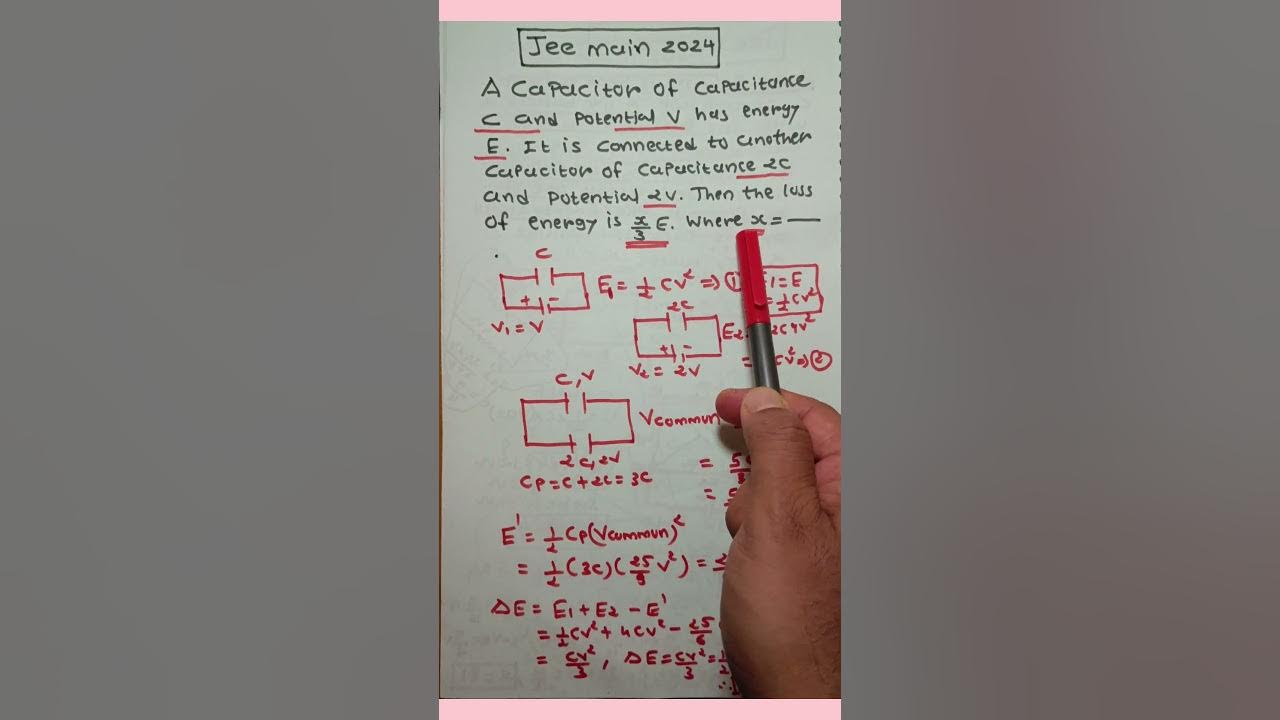 Jee main 2024
A Capacitor of Capacitance
C and Potential V has energy
E. It is connected to another
Capacitor of Capacitance 2C
and Potential 2V. Then the loss
of energy is x/3 E. Where x = —
C
+ -
V₁ = V
E₁ = 1/2 CV² ⇒ ①
E₁ = E
= 1/2 CV²
2C
+ -
V₂ = 2V
E₂ 2C4V²
= CV² ⇒ ②
C, V
2C, 2V
Vcommun
CP = C + 2C = 3C
= 5
=
E' = 1/2 CP(Vcommun)²
= 1/2 (3C)(25/9 V²) =
ΔE = E₁ + E₂ - E'
= 1/2 CV² + 4CV² - 25/6
= CV²/3, ΔE = CV²/3 =
∴